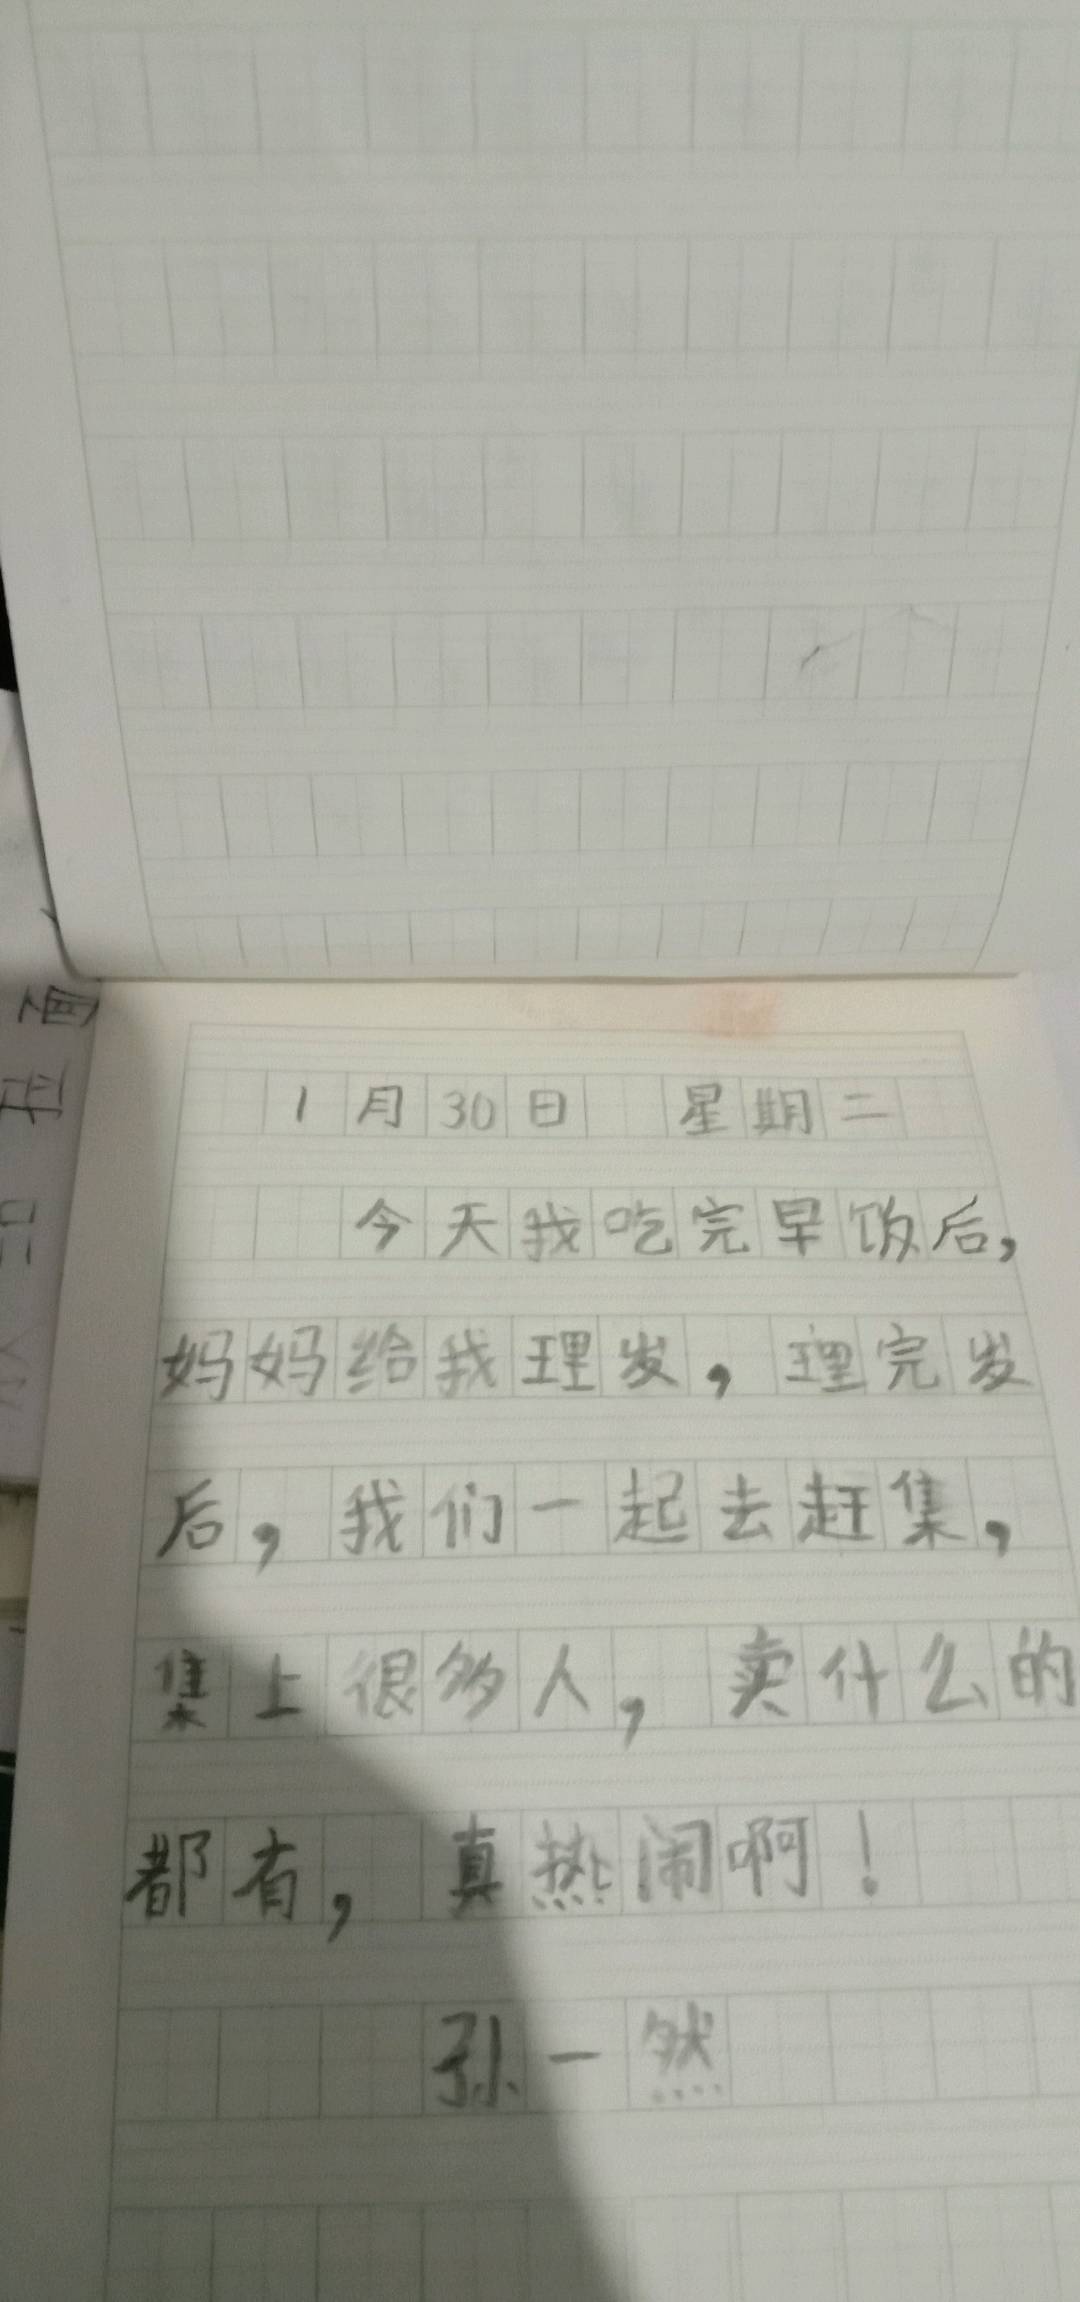 1月30日 星期二
今天我吃完早饭后,
妈妈给我理发,理完发
后,我们一起去赶集,
集上很多人,卖什么的
都有,真热闹啊!
孙一然